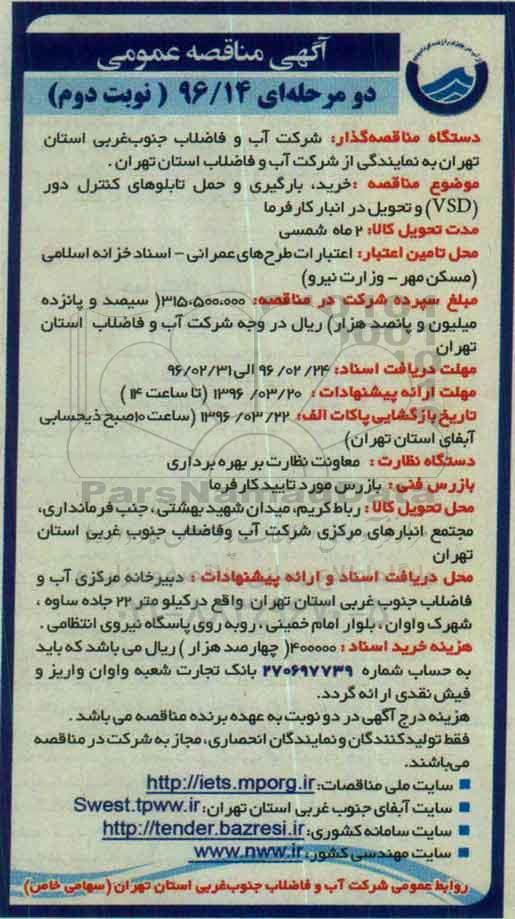 آگهی مناقصه عمومی
دو مرحله‌ای ۹۶/۱۴ ( نوبت دوم)
دستگاه مناقصه‌گذار: شرکت آب و فاضلاب جنوب‌غربی استان
تهران به نمایندگی از شرکت آب و فاضلاب استان تهران .
موضوع مناقصه :خرید، بارگیری و حمل تابلوهای کنترل دور
(VSD) و تحویل در انبار کارفرما
مدت تحویل کالا: ۲ ماه شمسی
محل تامین اعتبار: اعتبارات طرح‌های عمرانی – اسناد خزانه اسلامی
(مسکن مهر – وزارت نیرو)
مبلغ سپرده شرکت در مناقصه: ۳۱۵،۵۰۰،۰۰۰( سیصد و پانزده
میلیون و پانصد هزار) ریال در وجه شرکت آب و فاضلاب استان
تهران
مهلت دریافت اسناد: ۲۴/ ۰۲/ ۹۶ الی ۹۶/۰۲/۳۱
مهلت ارائه پیشنهادات : ۰۳/۲۰/ ۱۳۹۶ (تا ساعت ۱۴ )
تاریخ بازگشایی پاکات الف: ۰۳/۲۲/ ۱۳۹۶ (ساعت ۱۰صبح ذیحسابی
آبفای استان تهران)
دستگاه نظارت : معاونت نظارت بر بهره برداری
بازرس فنی : بازرس مورد تایید کارفرما
ParsNamadData
محل تحویل کالا : رباط کریم، میدان شهید بهشتی ، جنب فرمانداری،
مجتمع انبارهای مرکزی شرکت آب وفاضلاب جنوب غربی استان
تهران
محل دریافت اسناد و ارائه پیشنهادات : دبیرخانه مرکزی آب و
فاضلاب جنوب غربی استان تهران واقع درکیلو متر ۲۲ جاده ساوه ،
شهرک واوان ، بلوار امام خمینی ، روبه روی پاسگاه نیروی انتظامی .
هزینه خرید اسناد : ۴۰۰۰۰۰( چهارصد هزار ) ریال می باشد که باید
به حساب شماره ۲۷۰۶۹۷۷۳۹ بانک تجارت شعبه واوان واریز و
فیش نقدی ارائه گردد.
هزینه درج آگهی در دو نوبت به عهده برنده مناقصه می باشد .
فقط تولیدکنندگان و نمایندگان انحصاری، مجاز به شرکت در مناقصه
می‌باشند.
سایت ملی مناقصات: http://iets.mporg.ir
سایت آبفای جنوب غربی استان تهران: Swest.tpww.ir
سایت سامانه کشوری: http://tender.bazresi.ir
سایت مهندسی کشور: www.nww.ir
روابط عمومی شرکت آب و فاضلاب جنوب‌غربی استان تهران (سهامی خاص)